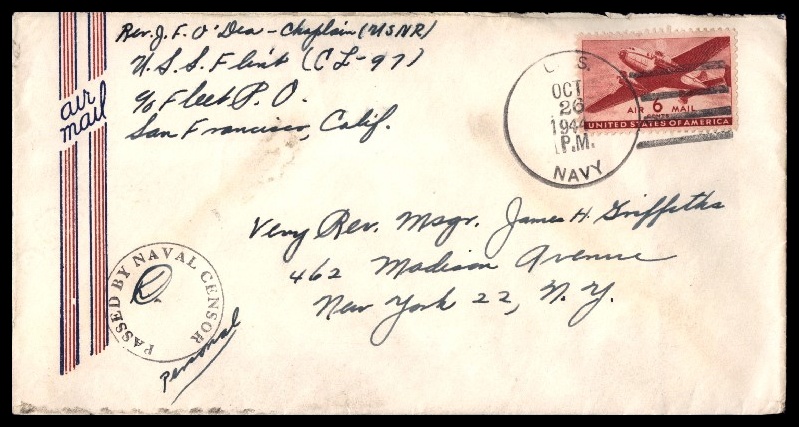 Rev. J. F. O'Dea - Chaplain (USNR)
U. S. S. Flint (CL-97)
c/o Fleet P. O.
San Francisco, Calif.
air
mail
U. S.
OCT
26
1944
P.M.
NAVY
AIR 6 MAIL
UNITED STATES OF AMERICA
Very Rev. Msgr. James H. Griffiths
462 Madison Avenue
New York 22, N. Y.
PASSED BY NAVAL CENSOR
Personal